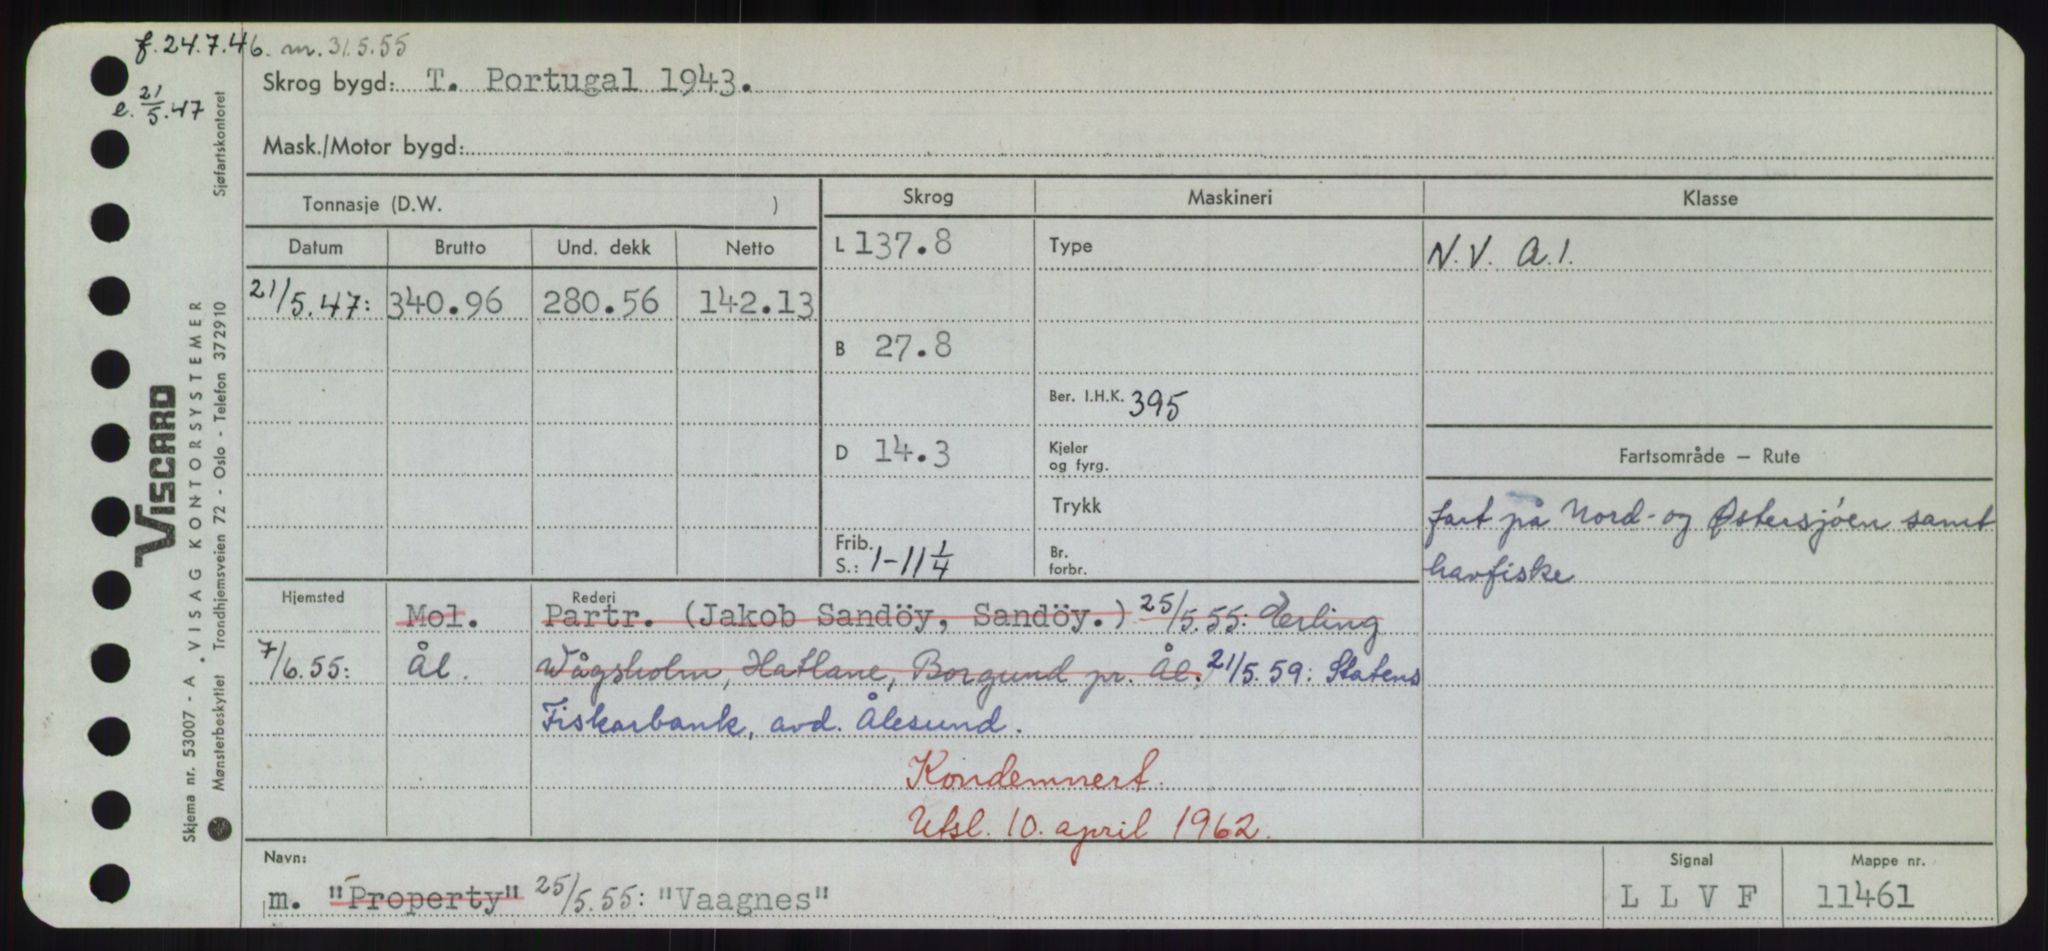 f. 24.7.46. m. 31.5.55
e. 21/5.47
Skrog bygd: T. Portugal 1943.
Mask./Motor bygd:
Tonnasje (D.W. )
Skrog
Maskineri
Klasse
Datum
Brutto
Und. dekk
Netto
L 137.8
Type
N.V. A.1.
21/5.47: 340.96 280.56 142.13
B 27.8
Ber. I.H.K. 395
D 14.3
Kjeler
og fyrg.
Fartsområde – Rute
Trykk
fart på Nord- og Østersjøen samt
havfiske
Frib.
S.: 1-11 1/4
Br.
forbr.
Hjemsted
Rederi
Mol. Partr. (Jakob Sandöy, Sandöy.) 25/5.55: Erling
7/6.55: Ål. Vågsholm, Hatlane, Borgund pr. Ål. 21/5.59: Statens
Fiskarbank, avd. Ålesund.
Kondemnert.
Utsl. 10. april 1962.
Navn:
m. "Property" 25/5.55: "Vaagnes"
Signal
L L V F
Mappe nr.
11461
VISCARD
Skjema nr. 53007 - A. VISAG KONTORSYSTEMER
Mønsterbeskyttet Trondhjemsveien 72 - Oslo - Telefon 372910
Sjøfartskontoret